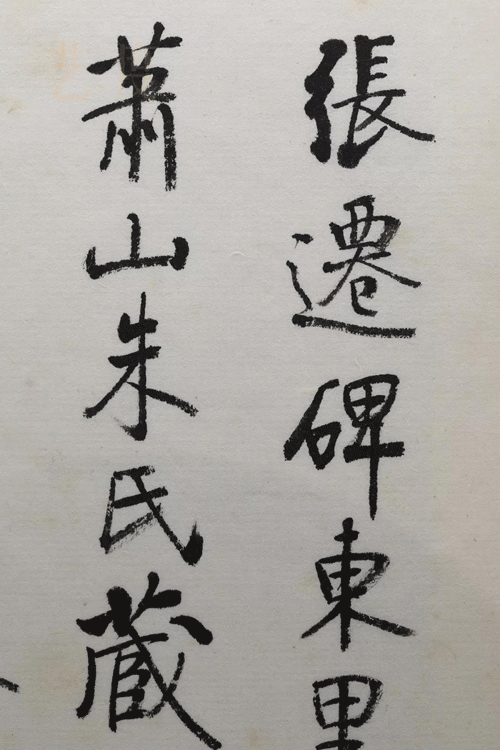 張遷碑東里
蕭山朱氏藏